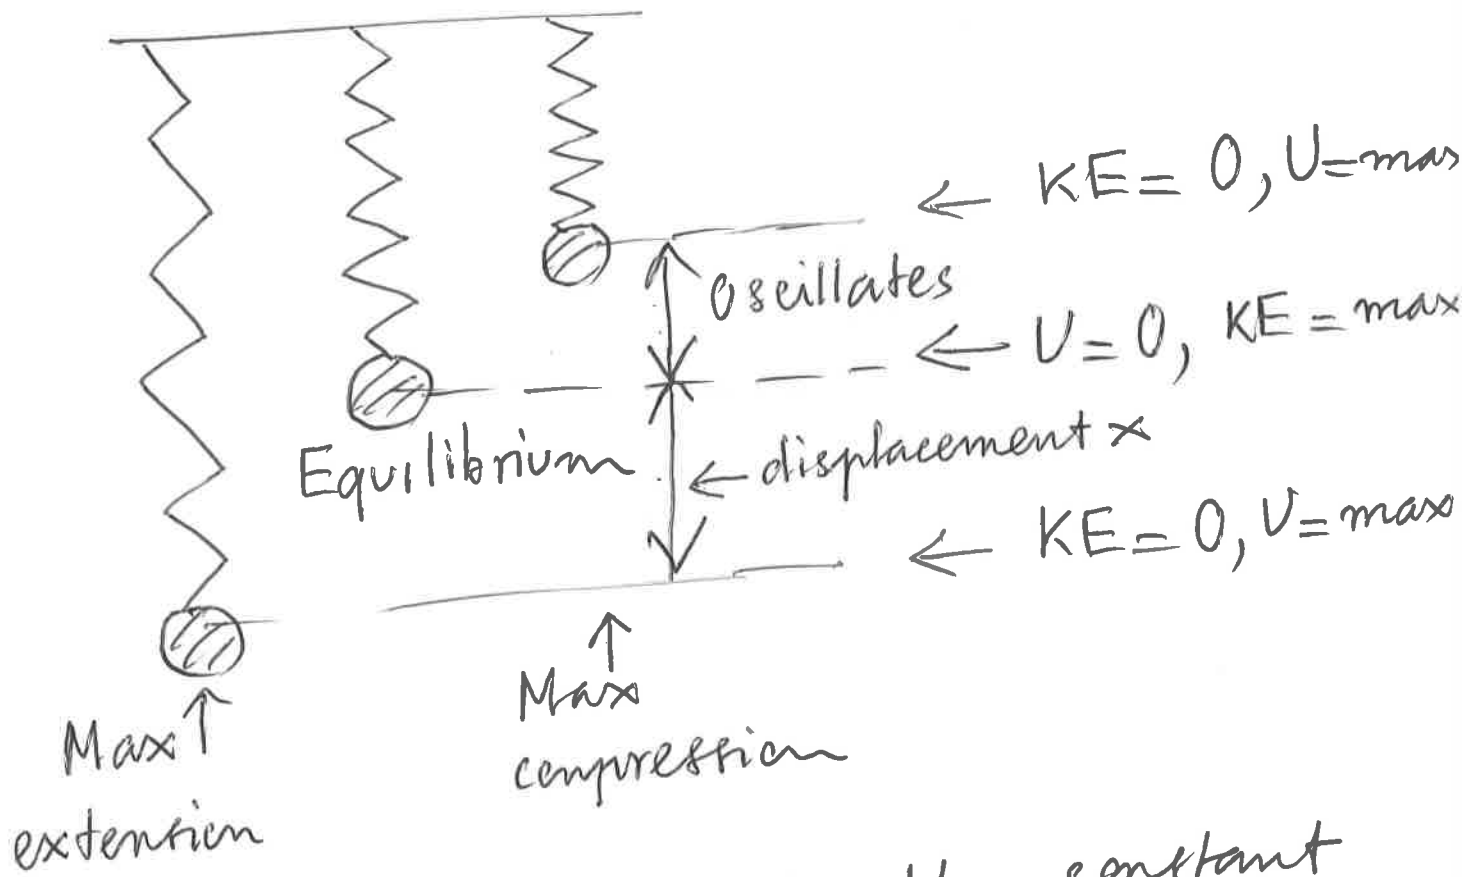 ← KE = 0, U = max
Oscillates
← U = 0, KE = max
Equilibrium
← displacement x
← KE = 0, U = max
↑
Max
compression
Max ↑
extension
constant